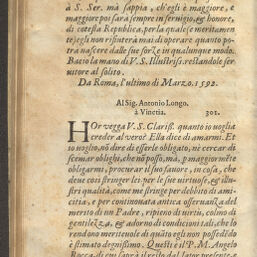 à S. Ser. mà sappia, ch'egli è maggiore, e
maggiore poi sarà sempre in seruigio, & honore,
di cotesta Republica, per la quale se meritamen-
te, egli non rifiuterà mai di operare quanto po-
trà nascere dalle sue forze in qualunque modo.
Bacio la mano di V. S. Illustriss. restandole ser-
uitore al solito.
Da Roma, l'ultimo di Marzo. 1592.
Al Sig. Antonio Longo.
à Vinetia. 301.
HOr vegga V. S. Clariss. quanto io voglia
creder al vero? Ella dice di amarmi. Et
io voglio, nò dire di esserle obligato, nè cercar di
scemar oblighi, che nò posso, mà, p maggiormète
obligarmi, procurar il suo fauore, in cosa, che
deue così stringer lei per le sue virtuose, & illu-
stri qualità, come me stringe per debito di ami-
citia, e per continouata antica osseruanza del
merito di un Padre, ripieno di virtù, colmo di
gentilezza, & adorno di condicioni tali, che lo
rendono meriteuole di quàto egli non possedèdo
è stimato degnissimo. Questi è il P. M. Angelo
Rocca, di cui saprà il resto dal lator presente, e